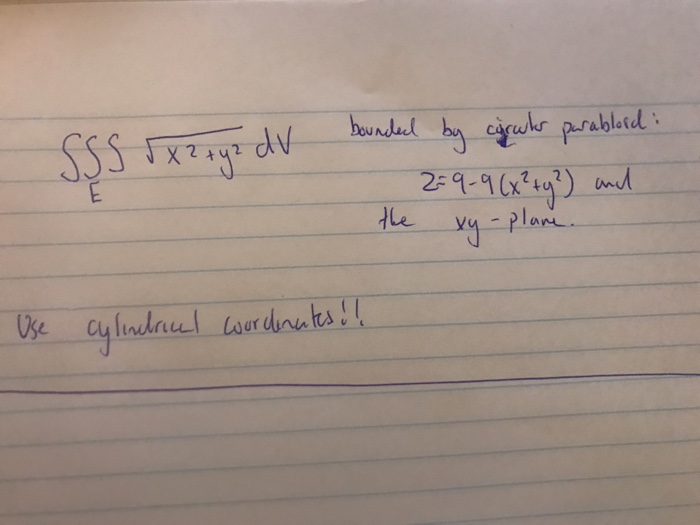 ∭ √x²+y² dV bounded by circular parabloid:
E
z=9-9(x²+y²) and
the xy-plane.
Use cylindrical coordinates!!